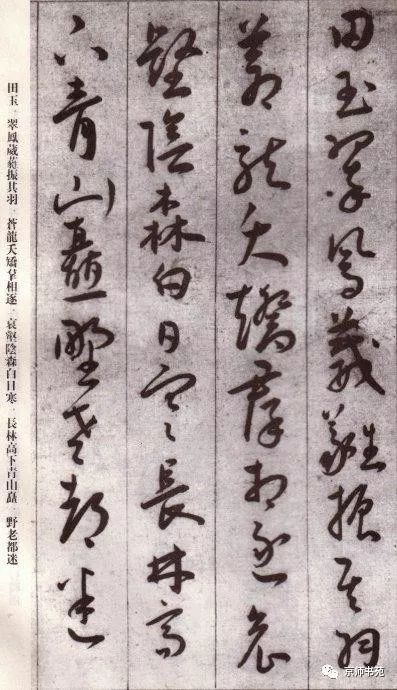 田玉翠鳳葳蕤振其羽
蒼龍夭矯羣相逐哀
壑陰森白日寒長林高
下青山矗野老都迷
田玉．翠鳳葳蕤振其羽．蒼龍夭矯羣相逐．哀壑陰森白日寒．長林高下青山矗．野老都迷
京师书苑